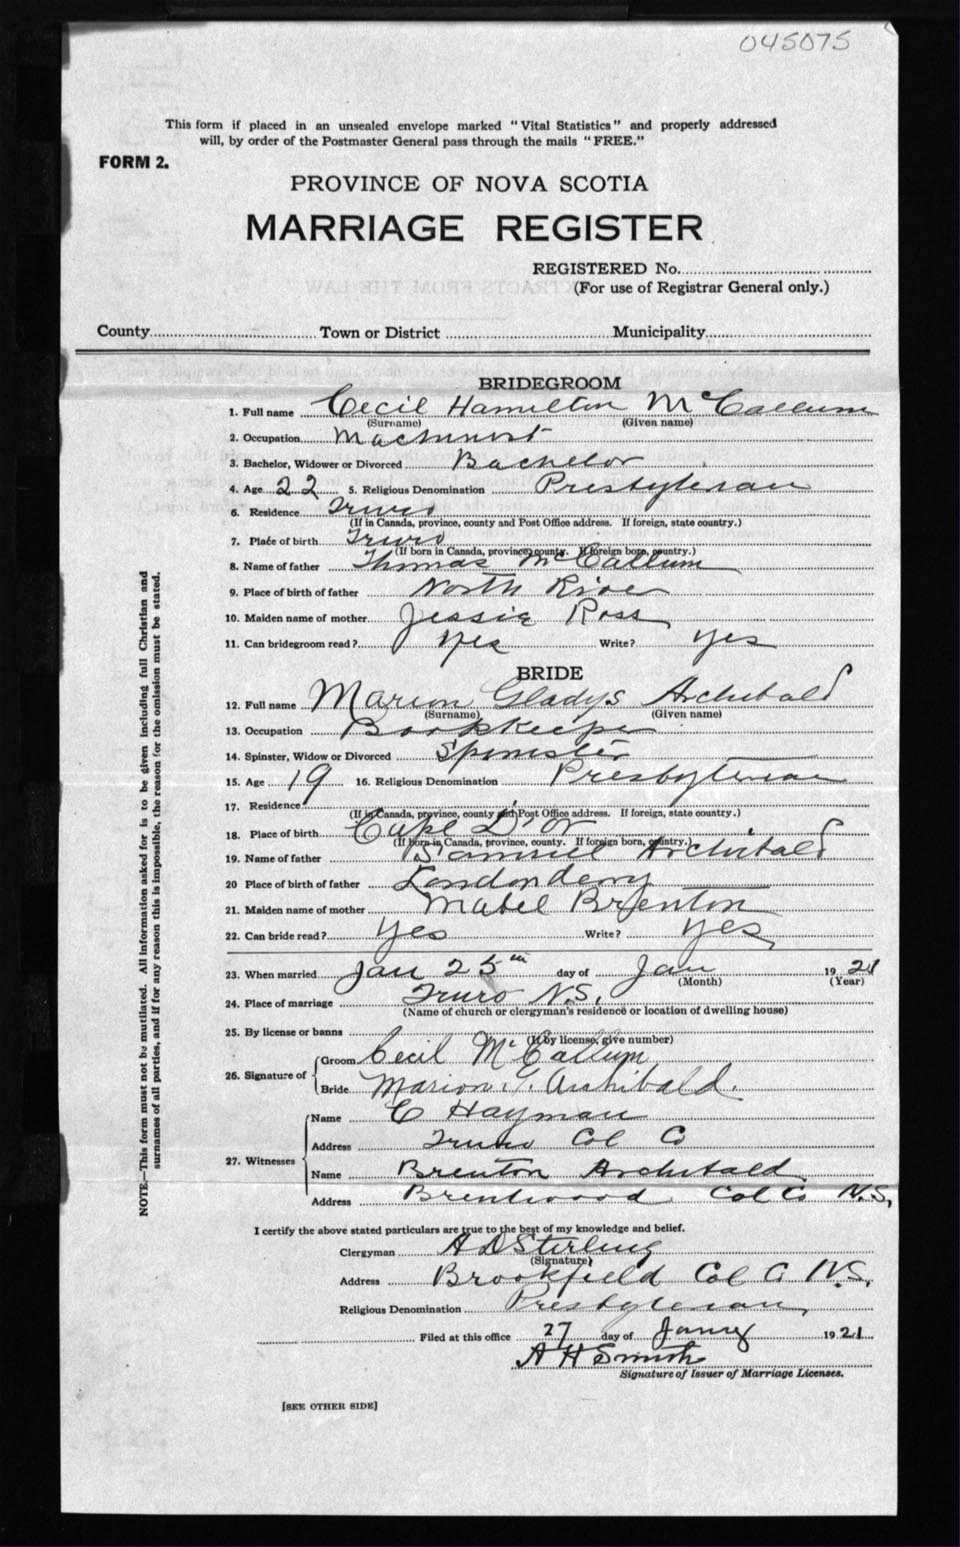 045075
This form if placed in an unsealed envelope marked "Vital Statistics" and properly addressed
will, by order of the Postmaster General pass through the mails "FREE."
FORM 2.
PROVINCE OF NOVA SCOTIA
MARRIAGE REGISTER
REGISTERED No.
(For use of Registrar General only.)
County Town or District Municipality
BRIDEGROOM
1. Full name Cecil Hamilton McCallum
(Surname) (Given name)
2. Occupation Machinist
3. Bachelor, Widower or Divorced Bachelor
4. Age 22 5. Religious Denomination Presbyterian
6. Residence Truro
(If in Canada, province, county and Post Office address. If foreign, state country.)
7. Place of birth Truro
(If born in Canada, province, county. If foreign born, country.)
8. Name of father Thomas McCallum
9. Place of birth of father North River
10. Maiden name of mother Jessie Ross
11. Can bridegroom read? Yes Write? Yes
BRIDE
12. Full name Marion Gladys Archibald
(Surname) (Given name)
13. Occupation Bookkeeper
14. Spinster, Widow or Divorced Spinster
15. Age 19 16. Religious Denomination Presbyterian
17. Residence
(If in Canada, province, county and Post Office address. If foreign, state country.)
18. Place of birth Cape D'or
(If born in Canada, province, county. If foreign born, country.)
19. Name of father Samuel Archibald
20 Place of birth of father Londonderry
21. Maiden name of mother Mabel Brenton
22. Can bride read? Yes Write? Yes
23. When married Jan 25th day of Jan 1921
(Month) (Year)
24. Place of marriage Truro N.S.
(Name of church or clergyman's residence or location of dwelling house)
25. By license or banns
(If by license, give number)
26. Signature of
Groom Cecil McCallum
Bride Marion G. Archibald.
27. Witnesses
Name C Hayman
Address Truro Col Co
Name Brenton Archibald
Address Brentwood Col Co N.S.
I certify the above stated particulars are true to the best of my knowledge and belief.
Clergyman A D Sterling
(Signature)
Address Brookfield Col C. N.S.
Religious Denomination Presbyterian
Filed at this office 27 day of Janry 1921
A H Smith
Signature of Issuer of Marriage Licenses.
[SEE OTHER SIDE]
NOTE.—This form must not be mutilated. All information asked for is to be given including full Christian and
surnames of all parties, and if for any reason this is impossible, the reason for the omission must be stated.